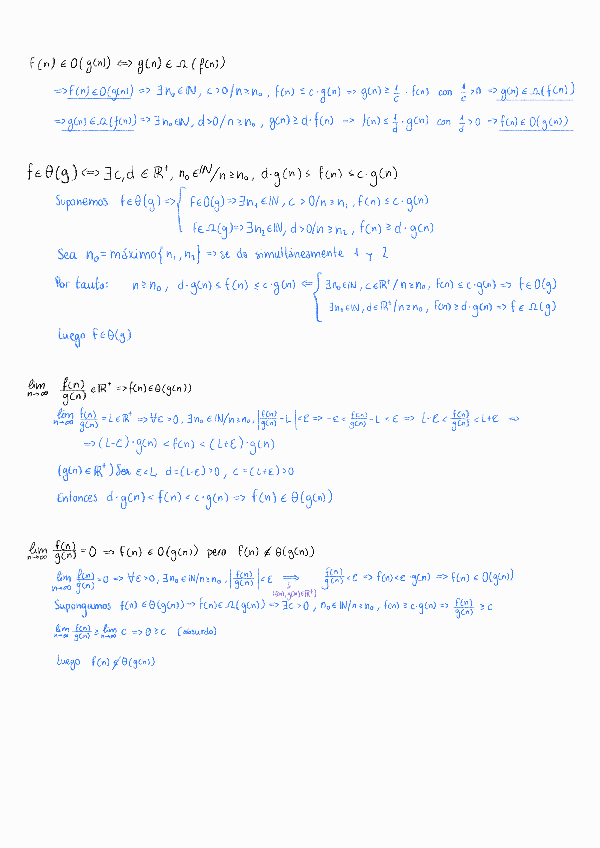 f(n) ∈ O(g(n)) ⇔ g(n) ∈ Ω(f(n))
⇒ f(n) ∈ O(g(n)) ⇒ ∃ n₀ ∈ ℕ, c > 0 / n ≥ n₀, f(n) ≤ c·g(n) ⇒ g(n) ≥ 1/c · f(n) con 1/c > 0 ⇒ g(n) ∈ Ω(f(n))
⇒ g(n) ∈ Ω(f(n)) ⇒ ∃ n₀ ∈ ℕ, d > 0 / n ≥ n₀, g(n) ≥ d·f(n) ⇒ f(n) ≤ 1/d · g(n) con 1/d > 0 ⇒ f(n) ∈ O(g(n))
f ∈ θ(g) ⇔ ∃ c,d ∈ ℝ⁺, n₀ ∈ ℕ / n ≥ n₀, d·g(n) ≤ f(n) ≤ c·g(n)
Suponemos f ∈ θ(g) ⇒ { f ∈ O(g) ⇒ ∃ n₁ ∈ ℕ, c > 0 / n ≥ n₁, f(n) ≤ c·g(n)
f ∈ Ω(g) ⇒ ∃ n₂ ∈ ℕ, d > 0 / n ≥ n₂, f(n) ≥ d·g(n)
Sea n₀ = máximo{n₁, n₂} ⇒ se da simultáneamente 1 y 2
Por tanto: n ≥ n₀, d·g(n) ≤ f(n) ≤ c·g(n) ⇐ { ∃ n₀ ∈ ℕ, c ∈ ℝ⁺ / n ≥ n₀, f(n) ≤ c·g(n) ⇒ f ∈ O(g)
∃ n₀ ∈ ℕ, d ∈ ℝ⁺ / n ≥ n₀, f(n) ≥ d·g(n) ⇒ f ∈ Ω(g)
Luego f ∈ θ(g)
lim n→∞ f(n)/g(n) ∈ ℝ⁺ ⇒ f(n) ∈ θ(g(n))
lim n→∞ f(n)/g(n) = L ∈ ℝ⁺ ⇒ ∀ε > 0, ∃ n₀ ∈ ℕ / n ≥ n₀, |f(n)/g(n) - L| < ε ⇒ -ε < f(n)/g(n) - L < ε ⇒ L-ε < f(n)/g(n) < L+ε ⇒
⇒ (L-ε)·g(n) < f(n) < (L+ε)·g(n)
(g(n) ∈ ℝ⁺) ε < L d = (L-ε) > 0, c = (L+ε) > 0
Entonces d·g(n) < f(n) < c·g(n) ⇒ f(n) ∈ θ(g(n))
lim n→∞ f(n)/g(n) = 0 ⇒ f(n) ∈ O(g(n)) pero f(n) ∉ θ(g(n))
lim n→∞ f(n)/g(n) = 0 ⇒ ∀ε > 0, ∃ n₀ ∈ ℕ / n ≥ n₀, |f(n)/g(n)| < ε ⇒ f(n)/g(n) < ε ⇒ f(n) < ε·g(n) ⇒ f(n) ∈ O(g(n))
f(n), g(n) ∈ ℝ⁺
Supongamos f(n) ∈ θ(g(n)) ⇒ f(n) ∈ Ω(g(n)) ⇒ ∃ c > 0, n₀ ∈ ℕ / n ≥ n₀, f(n) ≥ c·g(n) ⇒ f(n)/g(n) ≥ c
lim n→∞ f(n)/g(n) ≥ lim n→∞ c ⇒ 0 ≥ c (absurdo)
Luego f(n) ∉ θ(g(n))